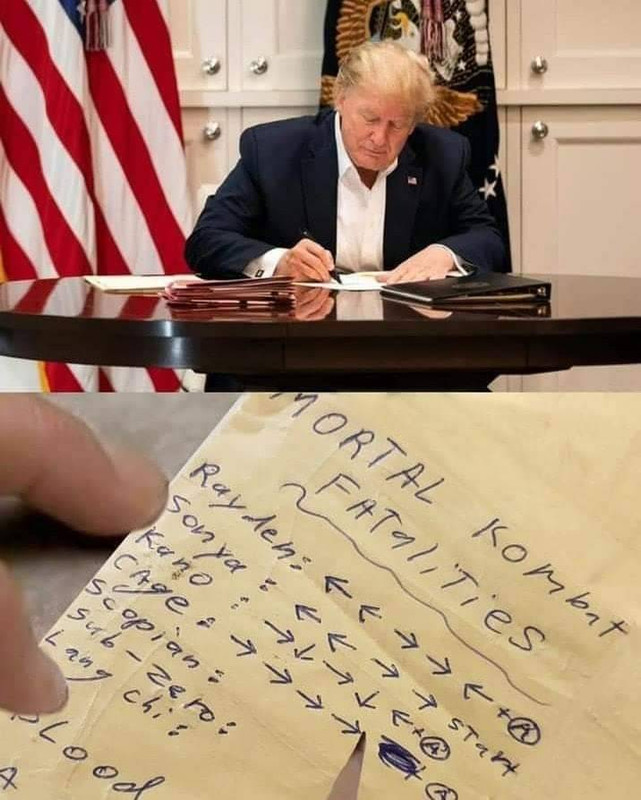 MORTAL Kombat
FATALITIES
Rayden: ← ← → → ← + Ⓐ
Sonya : ← ← → → start
Kano : → ↓ → ↓ ← + Ⓐ
CAge: → → → → + Ⓐ
Scopian:
Sub-Zero:
Lang Chi:
BLOOD
A